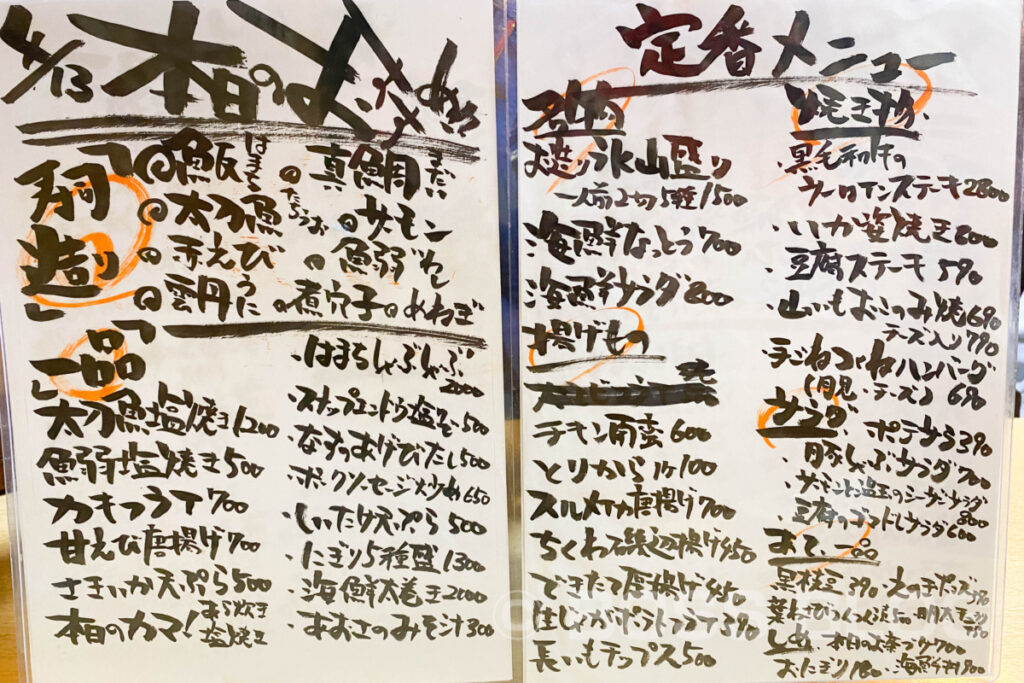 4/13 本日のおすすめ
「お造り」
魬 はまち
真鯛 まだい
太刀魚 たちうお
サーモン
赤えび
鰯 いわし
雲丹 うに
煮穴子
めねぎ
「一品」
太刀魚塩焼き 1200
鰯塩焼き 500
カキフライ 700
甘えび唐揚げ 700
さきいか天ぷら 500
本日のカマ! あら炊き 塩焼き
・はまちしゃぶしゃぶ 2000
・スナップエンドウ塩ゆで 500
・なすのあげびたし 500
・ポークソーセージ炒め 650
・しいたけ天ぷら 500
・にぎり5種盛 1300
・海鮮太巻き 2000
・あおさのみそ汁 300
定番メニュー
名物
お造り氷山盛り
一人前2切5種 1500
海鮮なっとう 700
海鮮サラダ 800
揚げもの
チキン南蛮 600
とりから1ヶ 100
スルメイカ唐揚げ 700
ちくわ磯辺揚げ 450
できたて厚揚げ 450
生じゃがポテトフライ 390
長いもチップス 500
焼き物
・黒毛和牛の
サーロインステーキ 2800
・いか姿焼き 800
・豆腐ステーキ 590
・山いもおこのみ焼 690
チーズ入り 790
・手ごねつくねハンバーグ
(月見・チーズ) 690
サラダ
ポテサラ 390
・豚しゃぶサラダ 700
・サーモンと温玉のシーザーサラダ 800
・豆腐のゴマドレサラダ 600
あて、一品
黒枝豆 390
・えのきポン酢
葉わさび 500
・明太
しめ
・本日のお茶づけ 700
おにぎり 180
・海鮮丼 900